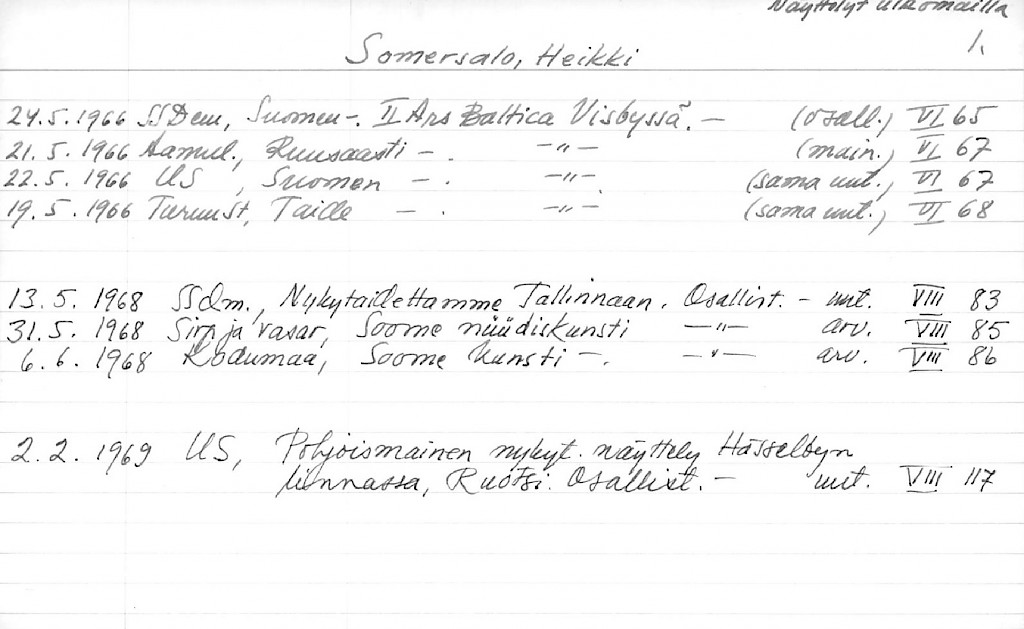 Näyttelyt ulkomailla
1.
Somersalo, Heikki
24.5.1966 SSDem, Suomen -. II Ars Baltica Visbyssä. - (osall.) VI 65
21.5.1966 Aamul., Ruusaasti - . -"- (main.) VI 67
22.5.1966 US, Suomen - . -"- (sama uut.) VI 67
19.5.1966 TurunSt, Taille - . -"- (sama uut.) VI 68
13.5.1968 SSdm., Nykytaidettamme Tallinnaan. Osallist. - uut. VIII 83
31.5.1968 Sirp ja Vasar, Soome nüüdiskunsti -"- arv. VIII 85
6.6.1968 Kodumaa, Soome kunsti -. -"- arv. VIII 86
2.2.1969 US, Pohjoismainen nykyt. näyttely Hässelbyn
linnassa, Ruotsi. Osallist. - uut. VIII 117